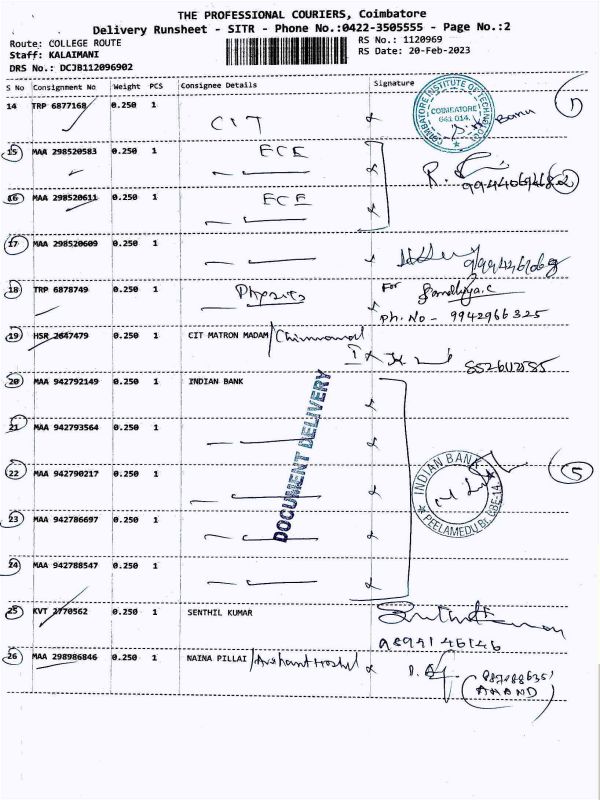 THE PROFESSIONAL COURIERS, Coimbatore
Delivery Runsheet - SITR - Phone No.:0422-3505555 - Page No.:2
Route: COLLEGE ROUTE
Staff: KALAIMANI
DRS No.: DCJB112096902
RS No.: 1120969
RS Date: 20-Feb-2023
S No Consignment No Weight PCS Consignee Details Signature
14 TRP 6877168 0.250 1 CIT
COIMBATORE INSTITUTE OF TECHNOLOGY
COIMBATORE
641 014.
Banu
1
15 MAA 298520583 0.250 1 ECE
16 MAA 298520611 0.250 1 ECE
2
17 MAA 298520609 0.250 1
18 TRP 6878749 0.250 1 Physics
For Sandhiya.c
Ph.No - 9942966325
19 HSR 2647479 0.250 1 CIT MATRON MADAM
20 MAA 942792149 0.250 1 INDIAN BANK
21 MAA 942793564 0.250 1
22 MAA 942790217 0.250 1
DOCUMENT DELIVERY
INDIAN BANK
PEELAMEDU Br. CBE-14
5
23 MAA 942786697 0.250 1
24 MAA 942788547 0.250 1
25 KVT 2770562 0.250 1 SENTHIL KUMAR
26 MAA 298986846 0.250 1 NAINA PILLAI
(ANAND)